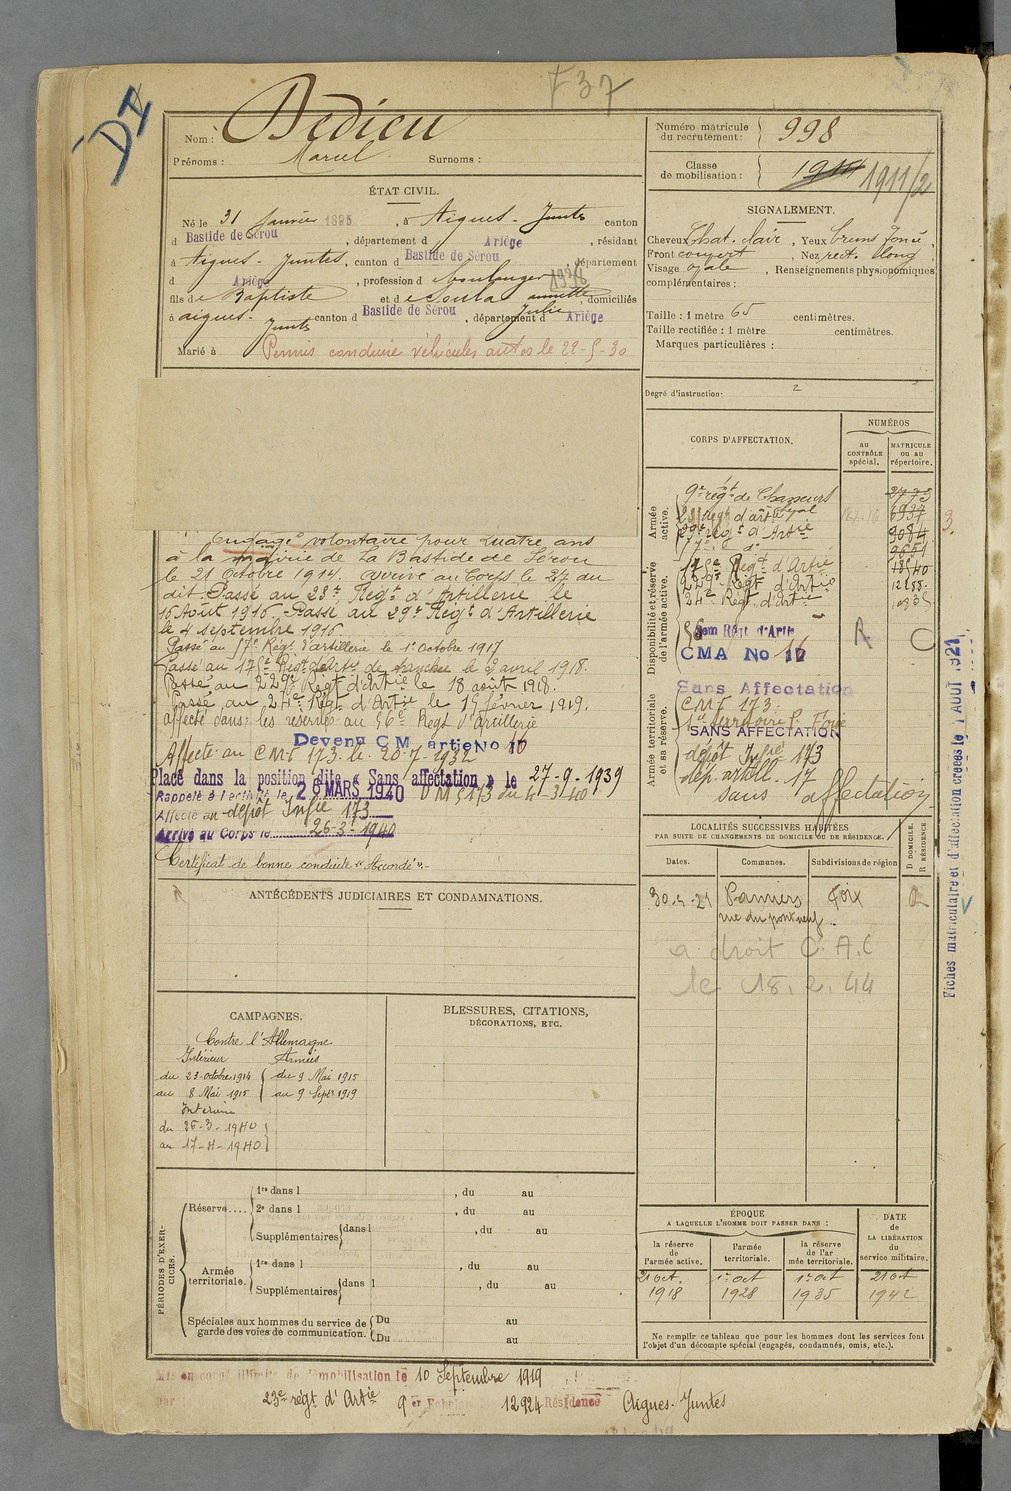 DV
F 37
Nom : Dedieu
Prénoms : Marcel Surnoms :
ÉTAT CIVIL.
Né le 31 Janvier 1895, à Aigues-Juntes canton
d Bastide de Sérou, département d Ariège, résidant
à Aigues-Juntes, canton d Bastide de Sérou, département
d Ariège, profession d boulanger 1938
fils de Baptiste et de Soula annette, domiciliés
Julie
à aigues-Juntes canton d Bastide de Sérou, département d Ariège
Marié à Permis conduire véhicules autos le 22-5-30
engagé volontaire pour quatre ans
à la mairie de La Bastide de Sérou
le 21 Octobre 1914. arrivé au Corps le 24 du
dit. Passé au 23e Régt d'Artillerie le
16 Août 1916 - Passé au 29e Régt d'Artillerie
le 4 septembre 1916
Passé au 17e Régt d'artillerie le 1er Octobre 1917
Passé au 175e Régt d'Artie de tranchée le 2 avril 1918.
Passé au 229e Regt d'Artie le 18 août 1918.
Passé au 24e Régt d'Artie le 15 février 1919.
affecté dans les réserves au 56e Regt d'artillerie
Devenu C M artie No 17 16
Affecté au C M I 173 le 20-7-1932
Placé dans la position dite « Sans affectation » le 27-9-1939
Rappelé à l'activité le 26 MARS 1940
Affecté au dépôt Infie 173
Arrivé au Corps le 26-3-1940
Certificat de bonne conduite « Accordé ».
ANTÉCÉDENTS JUDICIAIRES ET CONDAMNATIONS.
CAMPAGNES.
Contre l'Allemagne
Intérieur Armées
du 23 octobre 1914 du 9 Mai 1915
au 8 Mai 1915 au 9 Septe 1919
Interieur
du 26-3-1940
au 17-4-1940
BLESSURES, CITATIONS,
DÉCORATIONS, ETC.
PÉRIODES D'EXERCICES.
Réserve.... 1re dans l , du au
2e dans l , du au
Supplémentaires dans l , du au
Armée territoriale. 1re dans l , du au
Supplémentaires dans l , du au
Spéciales aux hommes du service de Du au
garde des voies de communication. Du au
Numéro matricule
du recrutement : 998
Classe
de mobilisation : 1914 1911/2
SIGNALEMENT.
Cheveux Chat. clair, Yeux bruns foncé,
Front couvert, Nez rect. long
Visage ovale, Renseignements physionomiques
complémentaires :
Taille : 1 mètre 65 centimètres.
Taille rectifiée : 1 mètre centimètres.
Marques particulières :
Degré d'instruction : 2
CORPS D'AFFECTATION.
NUMÉROS
au
CONTRÔLE
spécial.
MATRICULE
ou au
répertoire.
Armée active.
9e régt de Chasseurs 2773
23e regt d'artie 6987
29e régt d'Artie 9084
17e do
Disponibilité et réserve de l'armée active.
175e Regt d'Artie 18540
229e Régt d'Artie
24e Régt d'Artie
56 eme Régt d'Artie A C
CMA No 17 16
Armée territoriale et sa réserve.
Sans Affectation
C M I 173
SANS AFFECTATION
dépôt Infie 173
dép. artill. 17
sans affectation
LOCALITÉS SUCCESSIVES HABITÉES
PAR SUITE DE CHANGEMENTS DE DOMICILE OU DE RÉSIDENCE.
D DOMICILE.
R RÉSIDENCE
Dates. Communes. Subdivisions de région
30-4-21 Pamiers Foix R
rue du pont neuf
a droit C. A. C
le 18.2.44
ÉPOQUE
A LAQUELLE L'HOMME DOIT PASSER DANS :
la réserve
de
l'armée active.
l'armée
territoriale.
la réserve
de l'ar
mée territoriale.
DATE
de
LA LIBÉRATION
du
service militaire.
21 Oct. 1er Oct 1er Oct 21 Oct
1918 1928 1935 1942
Ne remplir ce tableau que pour les hommes dont les services font
l'objet d'un décompte spécial (engagés, condamnés, omis, etc.).
Fiches matriculaire et d'affectation créées le 1 AOUT 1921
Mis en congé illimité de démobilisation le 10 Septembre 1919
23e régt d'Artie 9 er Echelon 12924 Résidence Aigues-Juntes